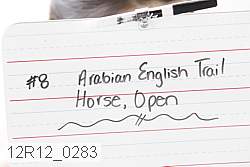 #8 Arabian English Trail
Horse, Open
12R12_0283